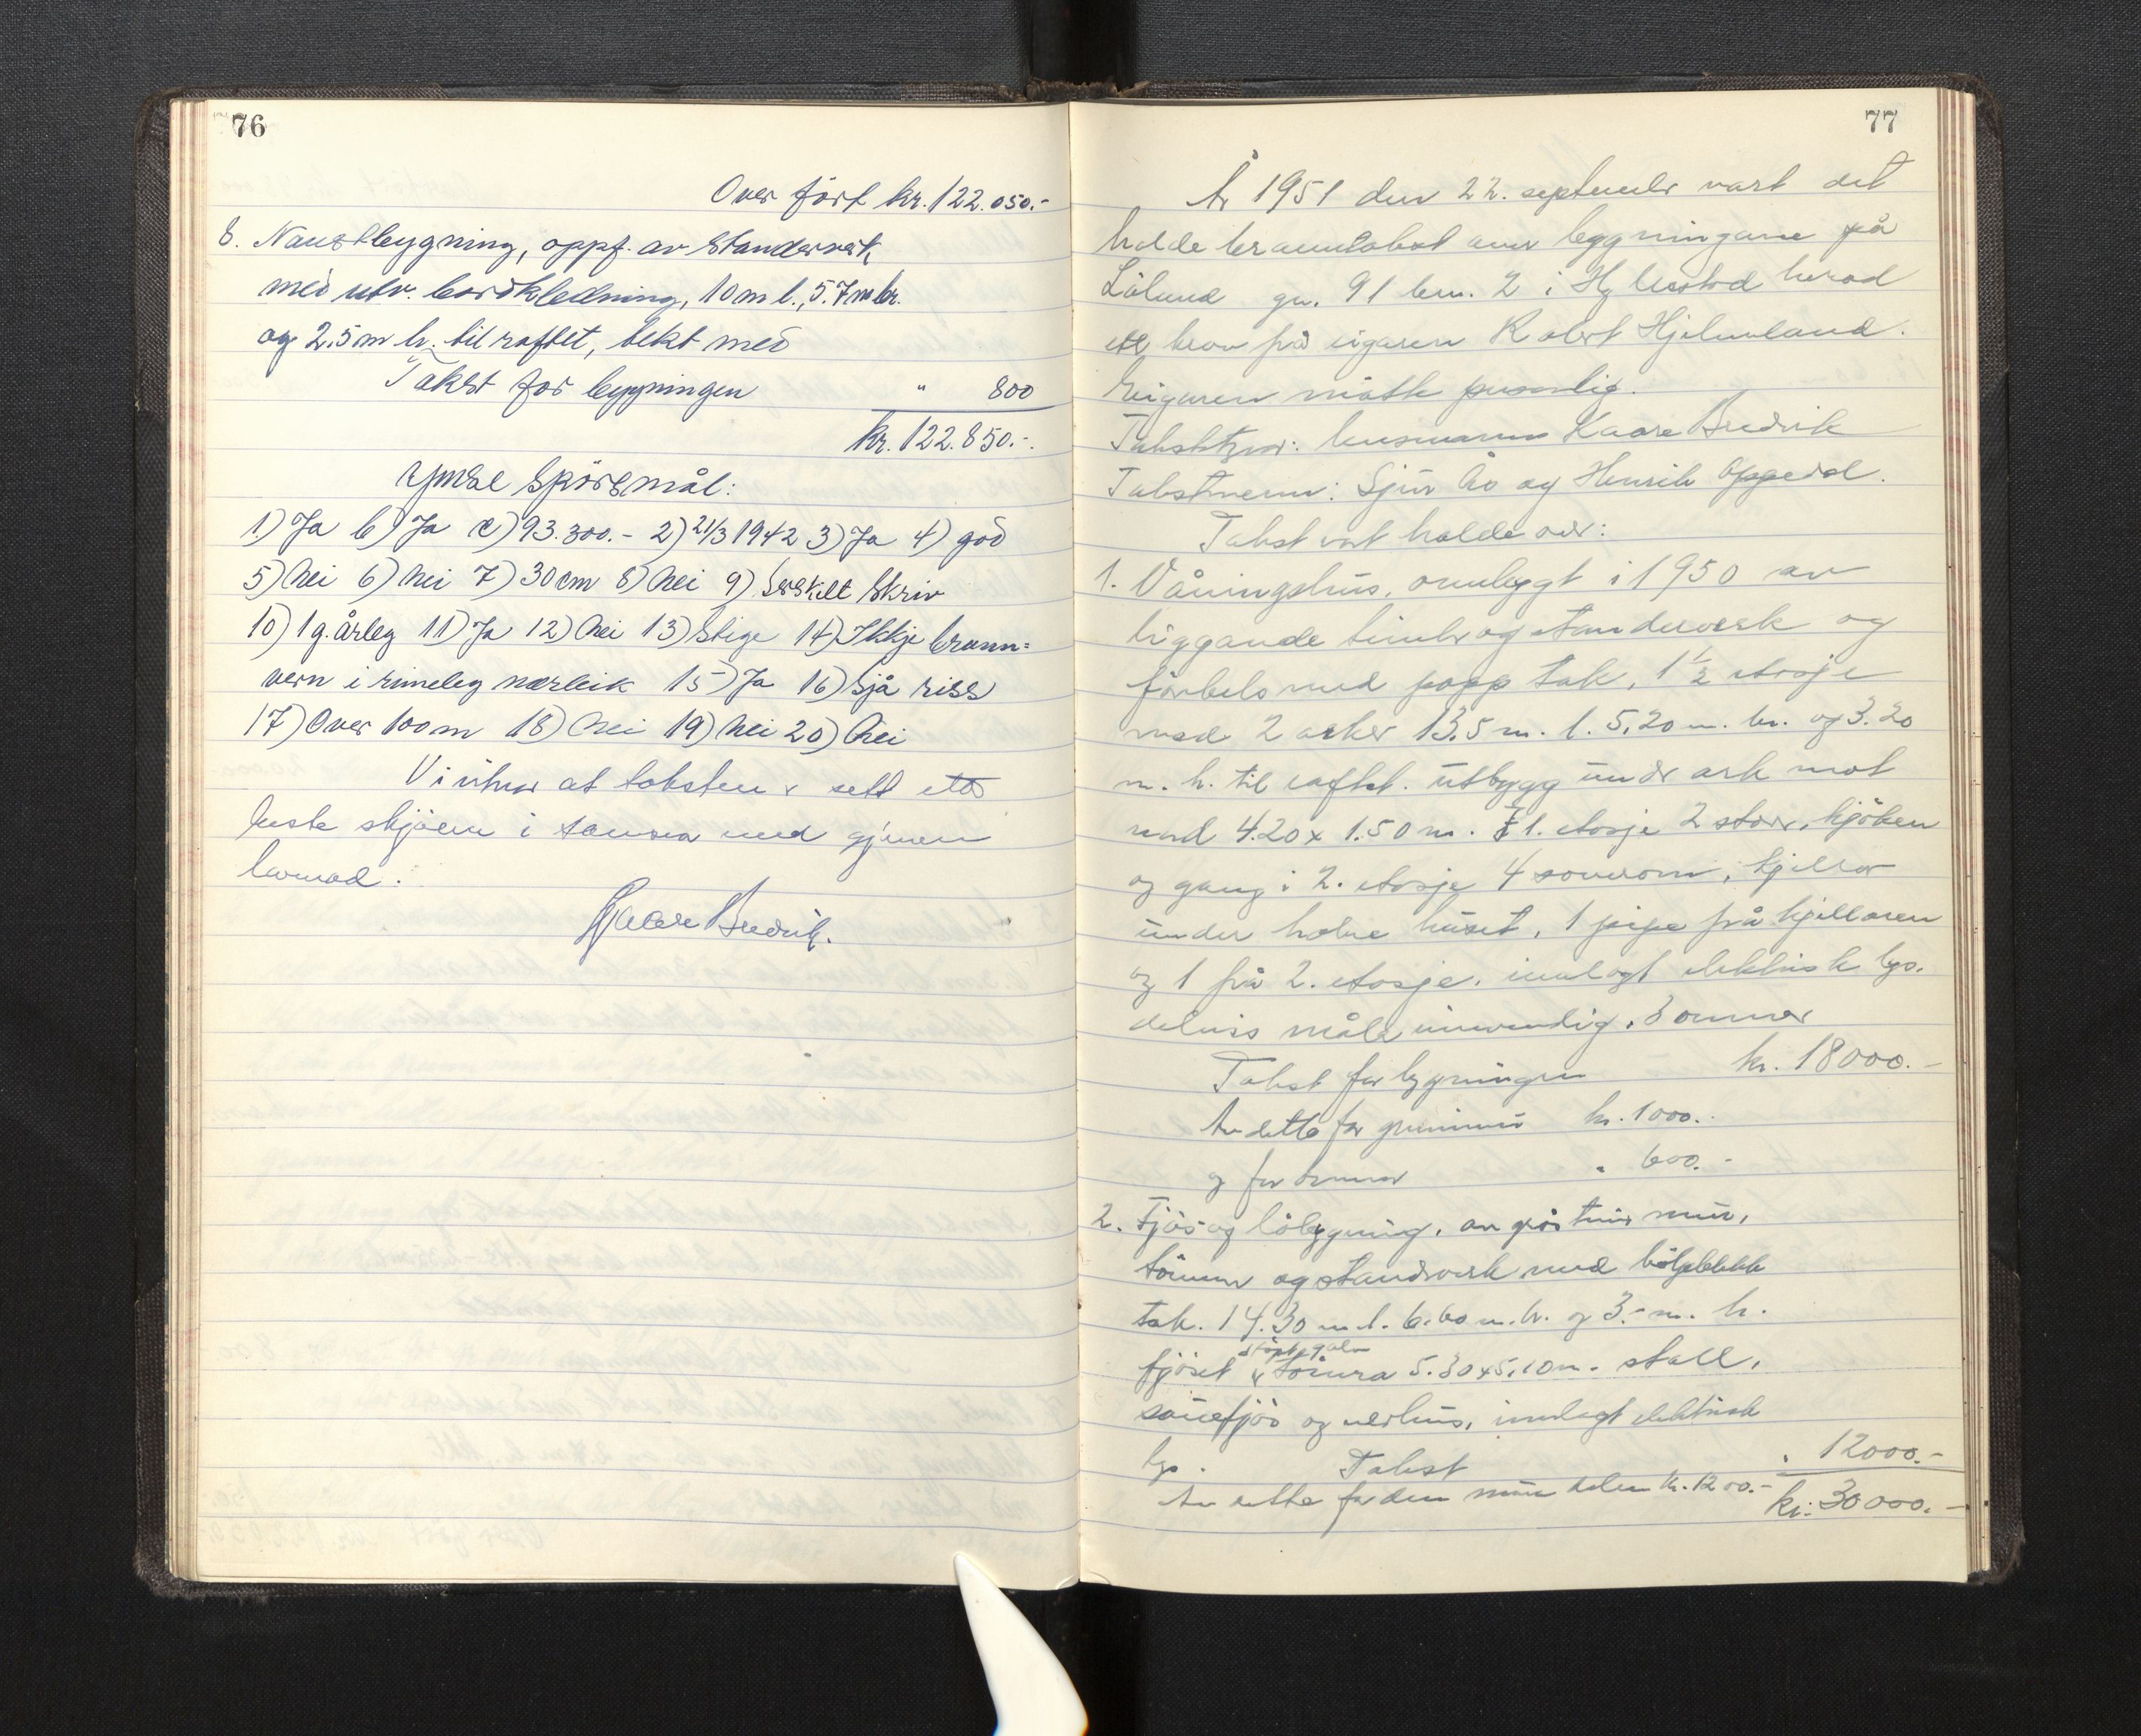 76
Over fört kr. 122.050.-
8. Naustbygning, oppf. av Standerverk
med utv. bordkledning, 10 m l., 5.7 m br.
og 2.5 m h. til raftet, tekt med
Takst for bygningen " 800
kr. 122.850.-
Ymse Spörsmål:
1.) Ja b) Ja c) 93.300.- 2) 21/3 1942 3) Ja 4) god
5) Nei 6) Nei 7) 30 cm 8) Nei 9) Serskilt Skriv
10) 1 g. årleg 11) Ja 12) Nei 13) Stige 14) Ikkje brann=
vern i rimeleg nærleik 15) Ja 16) Sjå riss
17) Over 100 m 18) Nei 19) Nei 20) Nei
Vi at taksten er sett etter
beste skjönn i samsvar med gjeven
lovnad.
Kaare Bredvik.
77
År 1951 den 22. september vart det
halde branntakst over bygningane på
gn. 91 bnr. 2 i Hyllestad herad
etter krav frå eigaren Robert Hjelmeland.
Eigaren mötte personlig.
Takststyrar: lensmann Kaare Bredvik
Takstmenn: Sjur Åo og Henrik Oppedal.
Takst vart halde over:
1. Våningshus, ombygt i 1950 av
liggande timbr og standerverk og
förebels med papp tak, 1 1/2 etasje
med 2 arker 13,5 m. l. 5,20 m. br. og 3.20
m. h. til raftet. utbygg under ark mot
nord 4.20 x 1.50 m. I 1. etasje 2 stover, kjöken
og gang i 2. etasje 4 soverom, kjellar
under halve huset, 1 pipe frå kjellaren
og 1 frå 2. etasje. innlagt elektrisk lys.
delvis måla innvendig. 3 omner
Takst for bygningen kr. 18000.-
Av dette for grunnmur kr. 1000.-
og for omner " 600.-
2. Fjös og löbygning, av gråsteins mur,
tömmer og standverk med bölgeblekk
tak. 14.30 m l. 6.60 m. br. og 3.- m. h.
fjöset 5.30 x 5,10 m. stall,
sauefjös og vedhus, innlagt elektrisk
lys. Takst " 12000.-
Av dette for den mura delen kr. 1200.- kr. 30000.-